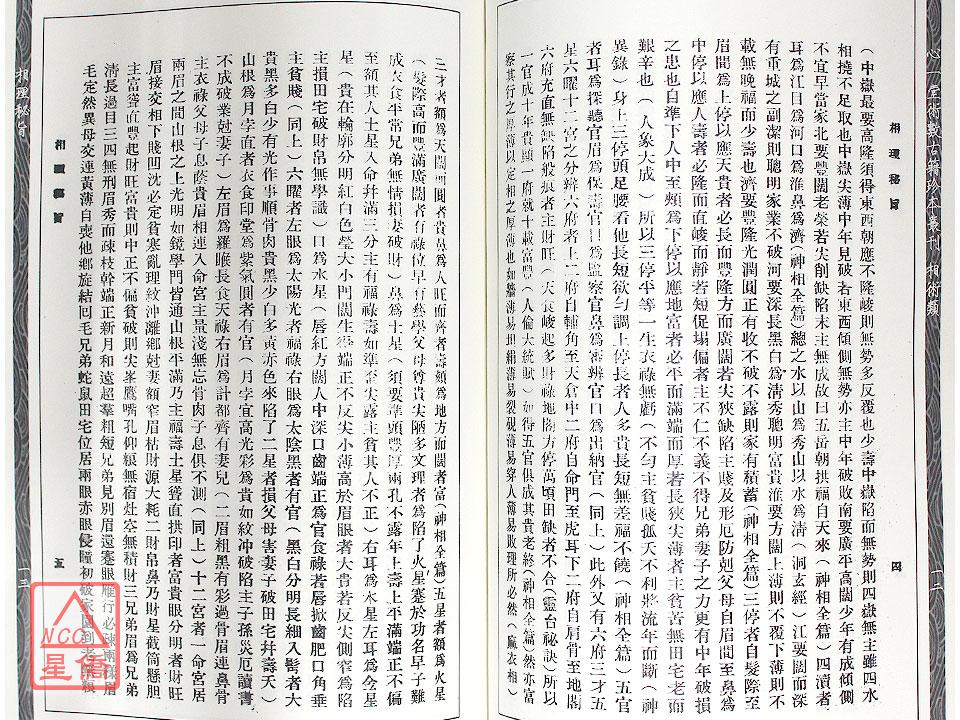 心一堂術數古籍珍本叢刊 相術類
一二
相理秘旨
四
（中嶽最要高隆須得東西朝應不隆峻則無勢多反覆也少壽中嶽陷而無勢則四嶽無主雖四水
相撓不足取也中嶽尖薄中年見破若東西傾側無勢亦主中年破敗南要廣平高闊少年有成傾側
不宜早當家北要豐闊老榮若尖削缺陷末主無成故曰五岳朝拱福自天來（神相全篇）四瀆者
耳爲江目爲河口爲淮鼻爲濟（神相全篇）總之水以山爲秀山以水爲淸（洞玄經）江要闊而深
有重城之副潔則聰明家業不破河要深長黑白分明淸秀聰明富貴淮要方闊上薄則不覆下薄則不
載無晚福而少壽也濟要豐隆光潤圓正有收不破不露則家有積蓄（神相全篇）三停者自髮際至
眉間爲上停以應天貴者必起而豐隆方而廣闊若尖狹缺陷主賤及形厄防剋父母自眉間至鼻爲
中停以應人壽者必隆而直峻而靜若短促塌偏者主不仁不義不得兄弟妻子之力更有中年破損
之患也自準下人中至頰爲下停以應地富者必平而滿端而厚若長狹尖薄者主貧苦無田宅老而
艱辛也（人象大成）所以三停平等一生衣祿無虧（不勻主貧賤孤夭不利將流年而斷（神相
異錄）身上三停頭足腰看他長短欲勻調上停長者人多貴長短無差福不饒（神相全篇）五官
者耳爲採聽官眉爲保壽官目爲監察官鼻爲審辨官口爲出納官（同上）此外又有六府三才五
星六曜十二宮之分辨六府者上二府自輔角至天倉中二府自命門至虎耳下二府自肩骨至地閣
六府充直無缺陷般痕者主財旺（天倉峻起多財祿地閣方停萬頃田缺者不合（靈台祕訣）所以
一官成十年貴顯一府就十載富豐（人倫大統賦）如得五官俱成其貴老終（神相全篇）然亦當
察其行之薄厚以定相之厚薄也如牆薄易坦絹薄易裂硯薄易穿人薄易敗理所必然（麻衣相）
三才者額爲天闊而圓者貴鼻爲人旺而齊者壽頷爲地方而闊者富（神相全篇）五星者額爲火星
（髮際高而豐滿廣闊者有祿位早有藝學父母尊貴尖陋多文理者爲陷了火星蹇於功名早子難
成衣食平常兄弟無情損妻破財）鼻爲土星（須要準頭豐厚兩孔不露年上壽上平滿端正不偏
至額其人土星入命幷滿三分主有福祿壽如準歪尖露主貧其人不正）右耳爲木星左耳爲金星
星（貴在輪廓分明紅白色瑩大小門闊生得端正不反尖小薄高於眉眼者大貴若反尖側窄爲陷
主損田宅破財帛無學識）口爲水星（唇紅方闊人中深口齒端正爲官食祿若唇掀齒肥口角垂
主貧賤（同上）六曜者左眼爲太陽光者福祿右眼爲太陰黑者有官（黑白分明長細入鬢者大
貴黑多白少有光作事順骨肉貴黑少白多黃赤色來陷了二星者損父母害妻子破田宅幷壽夭）
山根爲月孛直者衣食印堂爲紫氣圓者有官（月孛宜高光彩爲貴如紋冲破陷主子孫災厄讀書
不成破業尅妻子）左眉爲羅㬋長食天祿右眉爲計都齊有妻兒（二眉粗黑有彩過骨眉連鼻骨
主衣祿父母子息蔭貴眉相連入命宮主最淺無忘骨肉子息俱不測（同上）十二宮者一命宮居
兩眉之間山根之上光明如鏡學門皆通山根平滿乃主福壽土星聳直拱印者富貴眼分明者財旺
眉接交相下賤凹沈必定貧寒亂理紋沖離鄉尅妻額窄眉枯財源大耗二財帛鼻乃財星截筒懸胆
主富聳直豐起財旺富貴則中正不偏貧破則尖峯鷹嘴孔仰粮無宿灶空無積財三兄弟眉爲兄弟
淸長過目三四無刑眉秀而疎枝幹端正新月和遠超羣粗短兄弟見別眉還蹇眼雁行必疎兩樣眉
毛定然異母交連黃薄自喪他鄉旋結回毛兄弟蛇鼠田宅位居兩眼赤眼侵瞳初破家園到老無粮
相理秘旨
五
相理秘旨
一三
NCC
星僑